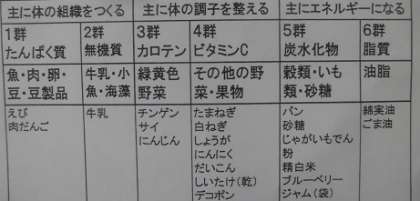 主に体の組織をつくる
主に体の調子を整える
主にエネルギーになる
1群
たんぱく質
2群
無機質
3群
カロテン
4群
ビタミンC
5群
炭水化物
6群
脂質
魚・肉・卵・
豆・豆製品
牛乳・小
魚・海藻
緑黄色
野菜
その他の野
菜・果物
穀類・いも
類・砂糖
油脂
えび
肉だんご
牛乳
チンゲン
サイ
にんじん
たまねぎ
白ねぎ
しょうが
にんにく
だいこん
しいたけ(乾)
デコポン
パン
砂糖
じゃがいもでん
粉
精白米
ブルーベリー
ジャム(袋)
綿実油
ごま油